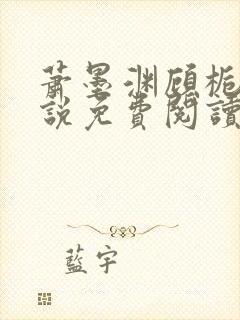 蕭墨渊顾栀
說免費閱讀
藍宇